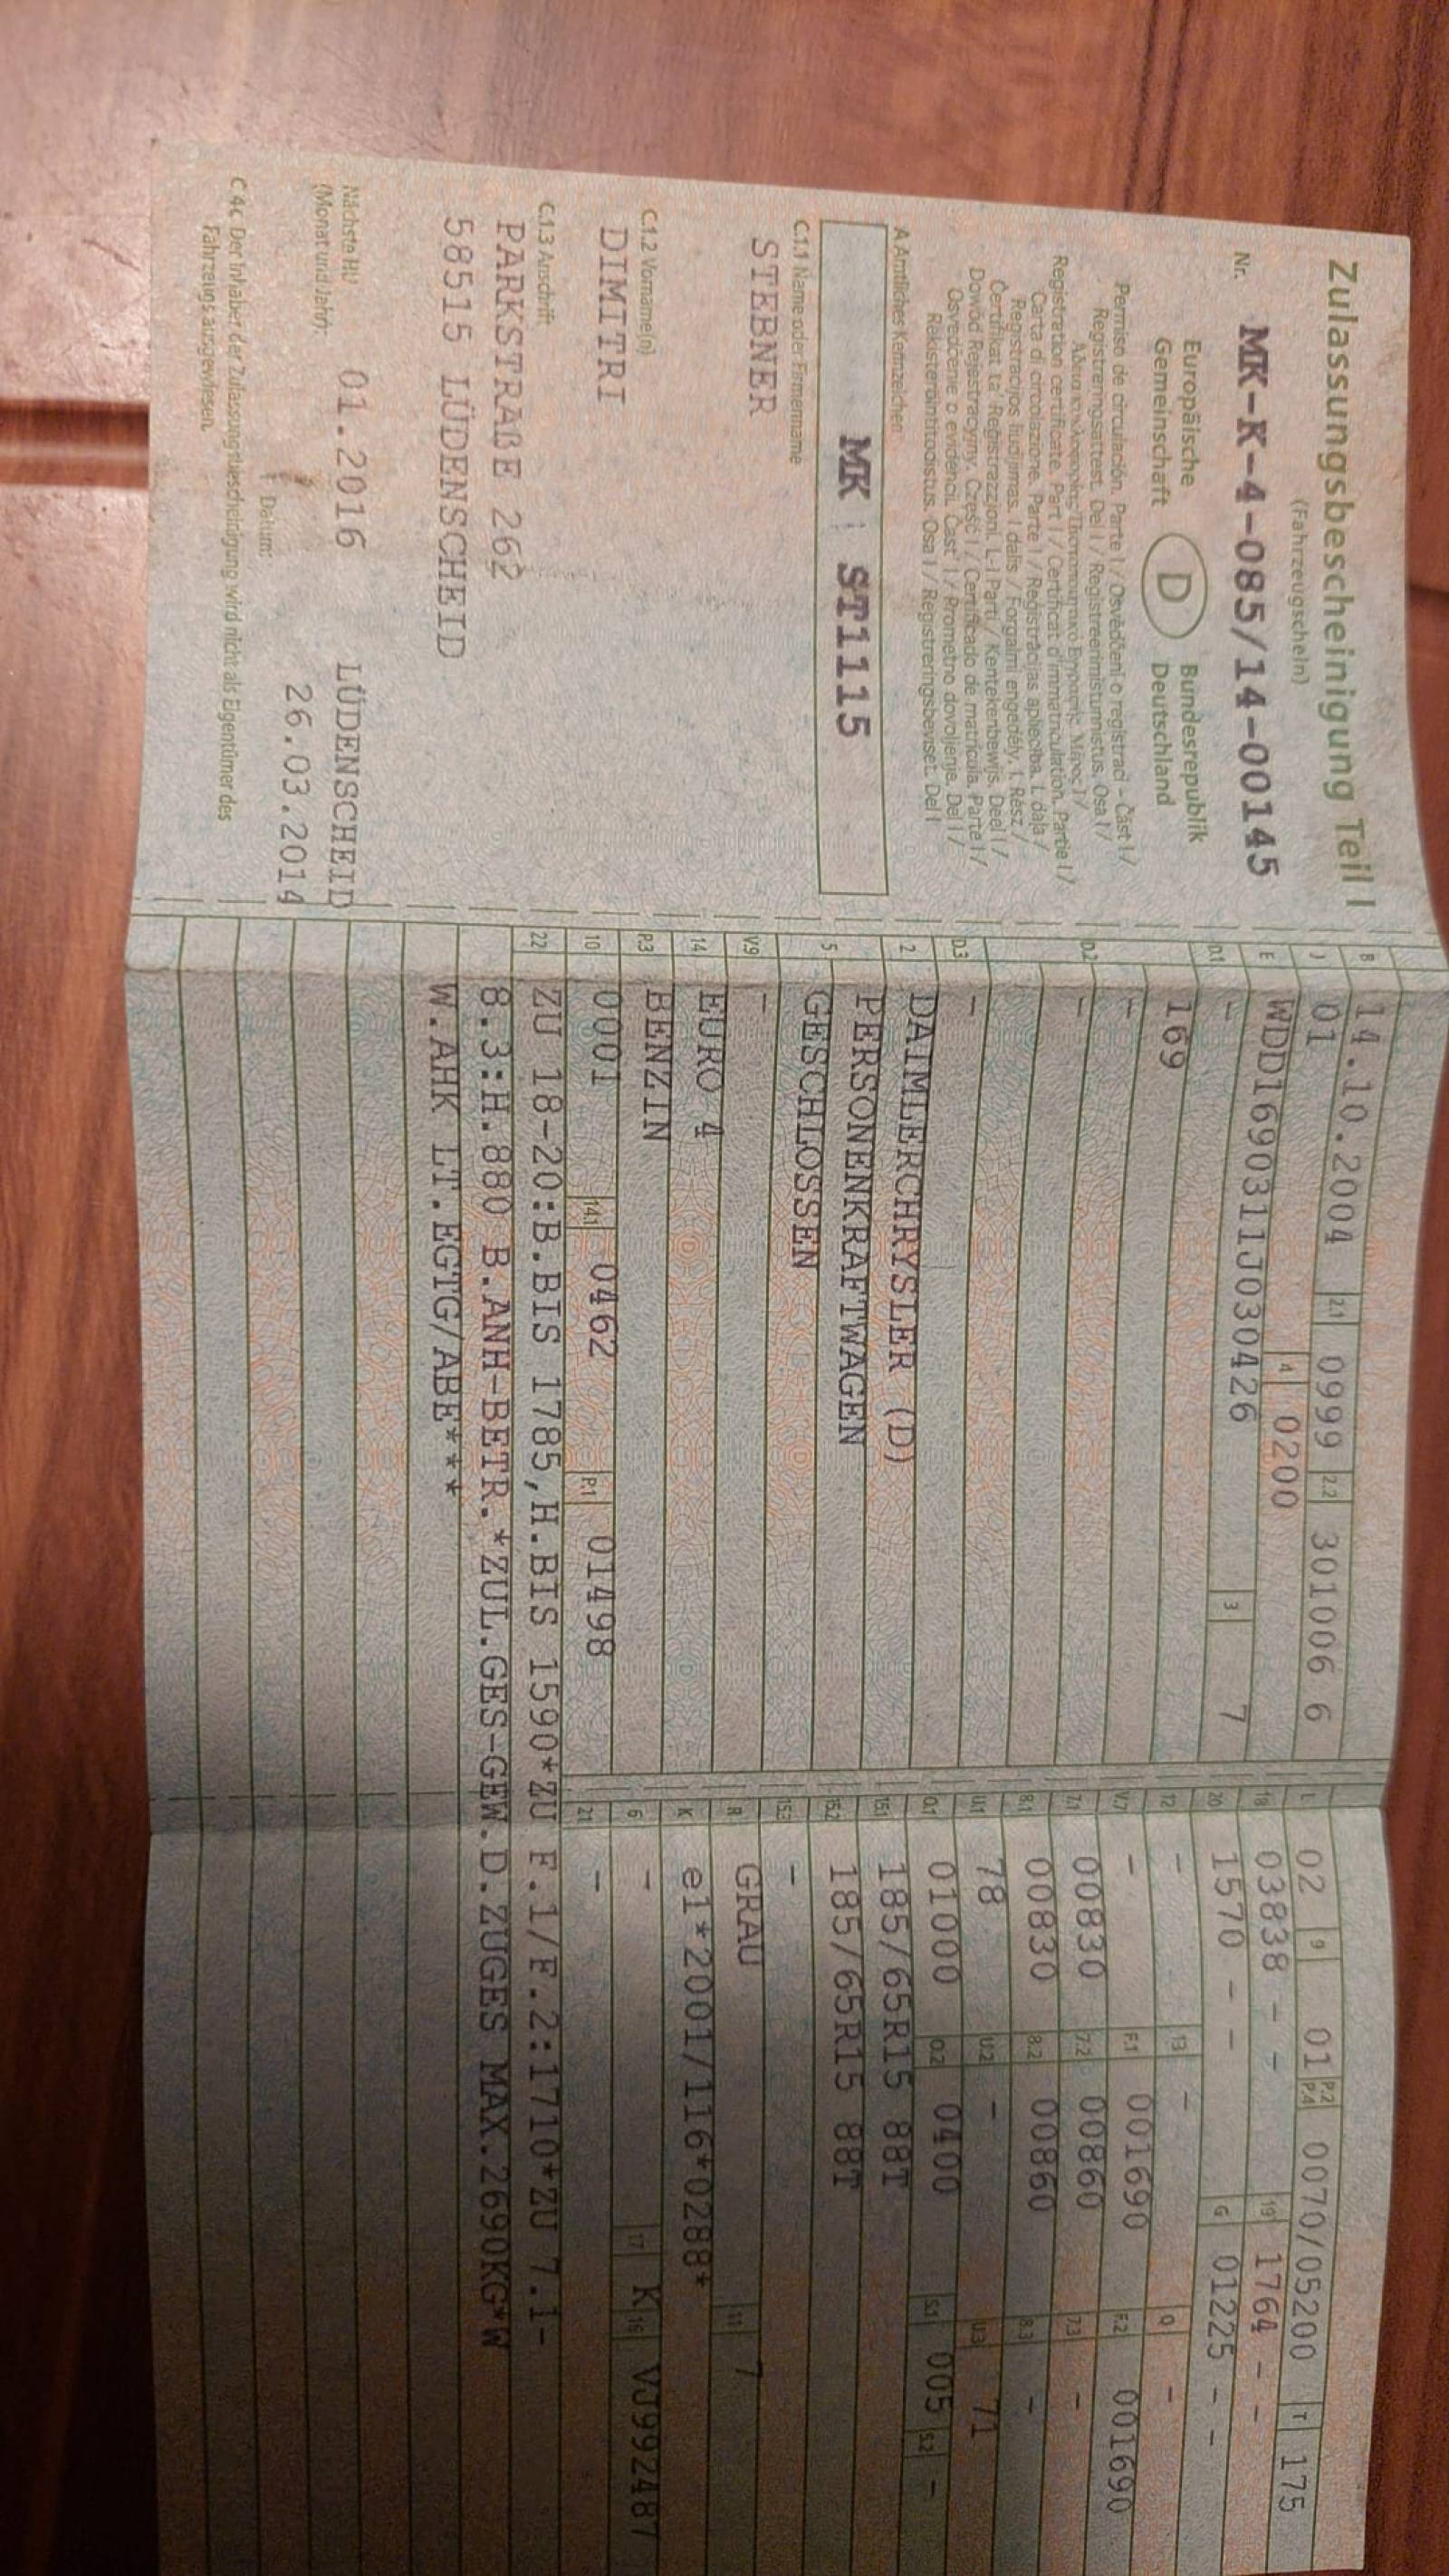 Zulassungsbescheinigung Teil I
(Fahrzeugschein)
Nr. MK-K-4-085/14-00145
Europäische Gemeinschaft
D
Bundesrepublik Deutschland
Permiso de circulación. Parte I / Osvědčení o registraci - Část I /
Registreringsattest. Del I / Registreerimistunnistus. Osa I /
Registration certificate. Part I / Certificat d'immatriculation. Partie I /
Carta di circolazione. Parte I / Reģistrācijas apliecība. I. daļa /
Registracijos liudijimas. I dalis / Forgalmi engedély. I. Rész /
Ċertifikat ta' Reġistrazzjoni. L-I Parti / Kentekenbewijs. Deel I /
Dowód Rejestracyjny. Część I / Certificado de matrícula. Parte I /
Osvedčenie o evidencii. Časť I / Prometno dovoljenje. Del I /
Rekisteröintitodistus. Osa I / Registreringsbeviset. Del I
A Amtliches Kennzeichen
MK ST1115
C.1.1 Name oder Firmenname
STEBNER
C.1.2 Vorname(n)
DIMITRI
C.1.3 Anschrift
PARKSTRAßE 262
58515 LÜDENSCHEID
Nächste HU (Monat und Jahr):
01.2016 LÜDENSCHEID
Datum: 26.03.2014
C4c Der Inhaber der Zulassungsbescheinigung wird nicht als Eigentümer des
Fahrzeugs ausgewiesen.
B 14.10.2004 2.1 0999 2.2 301006 6
J 01 4 0200
E WDD1690311J030426 3 7
D.1 -
169
D.2 -
-
D.3 -
2 DAIMLERCHRYSLER (D)
5 PERSONENKRAFTWAGEN
GESCHLOSSEN
V.9 -
14 EURO 4
P.3 BENZIN
10 0001 14.1 0462 P.1 01498
L 02 9 01 P.2 P.4 0070/05200 T 175
18 03838 - - 19 1764 - -
20 1570 - - G 01225 - -
12 - 13 - Q -
V.7 - F.1 001690 F.2 001690
7.1 00830 7.2 00860 7.3 -
8.1 00830 8.2 00860 8.3 -
U.1 78 U.2 - U.3 71
O.1 01000 O.2 0400 S.1 005 S.2 -
15.1 185/65R15 88T
15.2 185/65R15 88T
15.3 -
R GRAU 11 7
K e1*2001/116*0288*
6 - 17 K 16 VJ992487
21 -
22 ZU 18-20:B.BIS 1785,H.BIS 1590*ZU F.1/F.2:1710*ZU 7.1-
8.3:H.880 B.ANH-BETR.*ZUL.GES-GEW.D.ZUGES MAX.2690KG*W
W.AHK LT.EGTG/ABE***